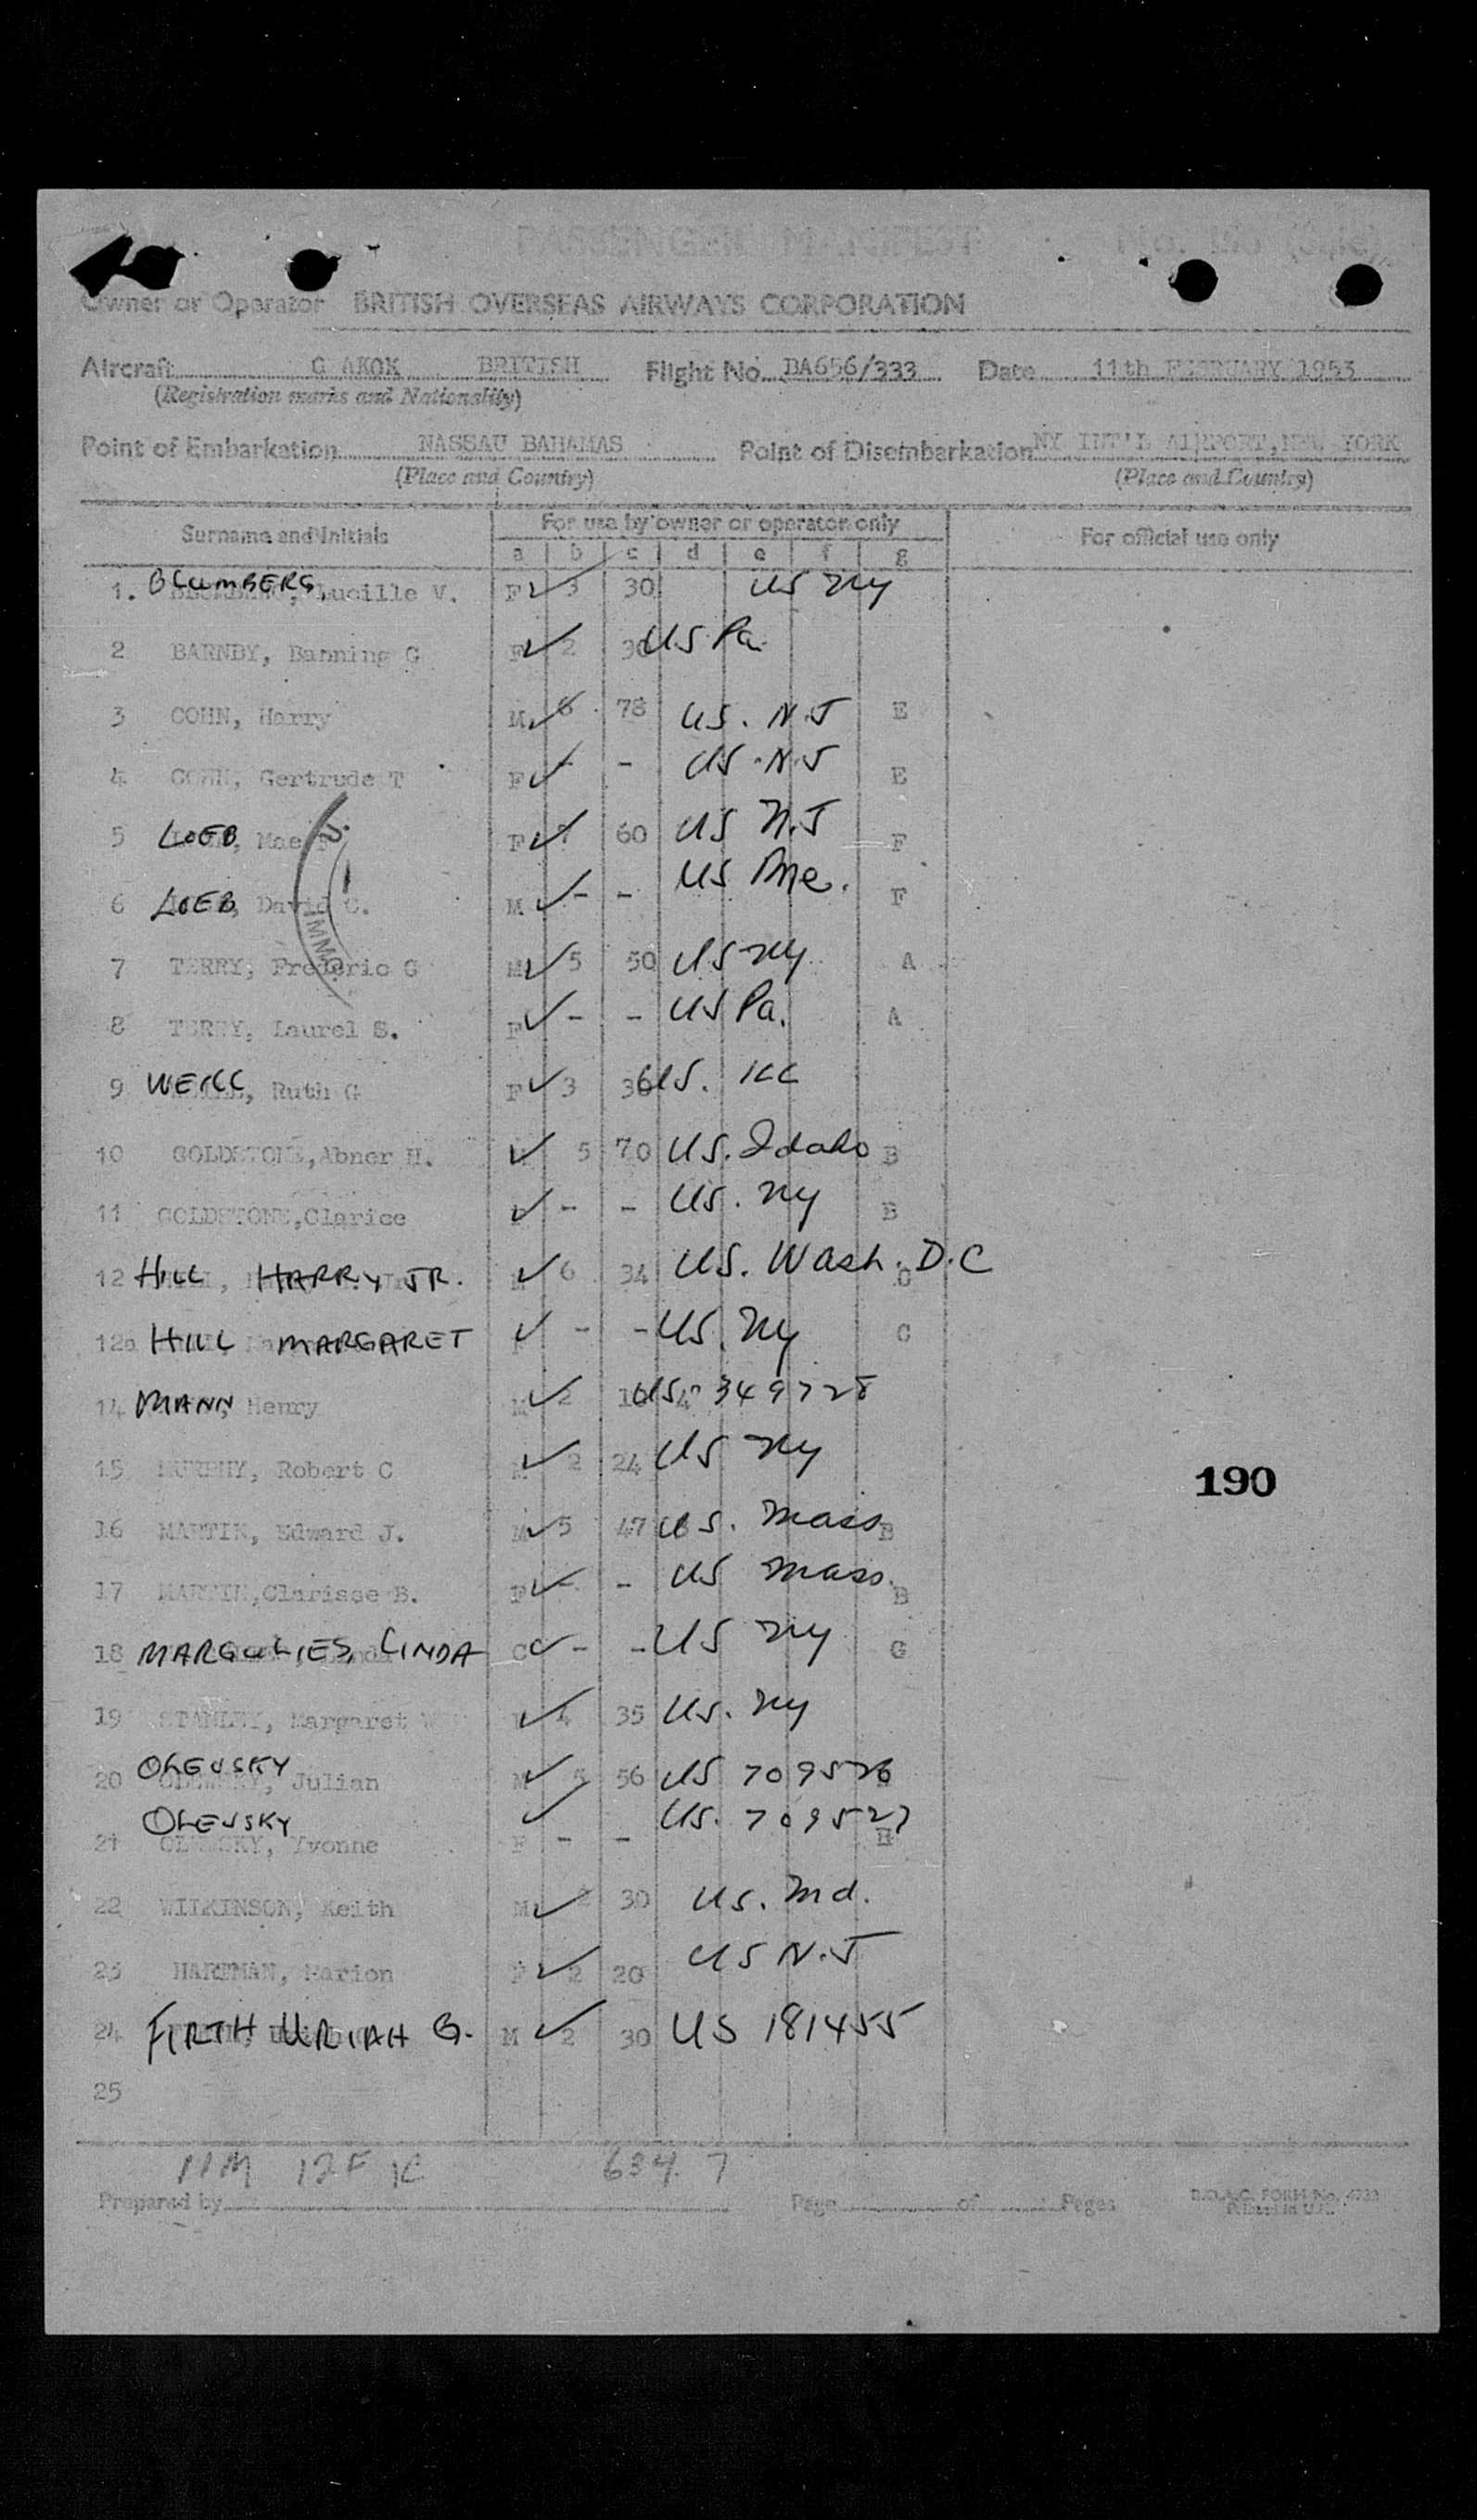 PASSENGER MANIFEST No.
Owner or Operator BRITISH OVERSEAS AIRWAYS CORPORATION
Aircraft G AKOK BRITISH Flight No. BA656/333 Date 11th FEBRUARY 1953
(Registration marks and Nationality)
Point of Embarkation NASSAU BAHAMAS Point of Disembarkation NY INT'L AIRPORT, NEW YORK
(Place and Country) (Place and Country)
Surname and Initials For use by owner or operator only For official use only
a b c d e f g
1. BLUMBERG, Lucille V. F 3 30 US NY
2 BARNBY, Banning G F 2 30 US Pa.
3 COHN, Harry M 6 78 US. N.J E
4 COHN, Gertrude T F - - US. N.J E
5 LOEB, Mae F 7 60 US N.J F
6 LOEB, David C. M - - US F
IMMIG
7 TERRY, Frederic G M 5 50 US NY A
8 TERRY, Laurel S. F - - US Pa. A
9 WEILL, Ruth G F 3 36 US. ILL
10 GOLDSTONE, Abner H. 5 70 US. Idaho B
11 GOLDSTONE, Clarice F - - US. NY B
12 HILL HARRY JR. M 6 34 US. Wash. D.C C
12a HILL MARGARET F - - US. NY C
14 MANN, Henry M 2 US 349728
15 MURPHY, Robert C M 2 24 US NY
16 MARTIN, Edward J. M 5 47 US. Mass B
17 MARTIN, Clarisse B. F - - US Mass. B
18 MARGULIES, LINDA C - - US NY G
19 STANLEY, Margaret F 4 35 US. NY
20 OLEVSKY, Julian M 5 56 US 709526
21 OLEVSKY, Yvonne F - - US. 709527 H
22 WILKINSON, Keith M 2 30 US. Md.
23 HARTMAN, Marion F 2 20 US N.J
24 FIRTH URIAH G. M 2 30 US 181455
25
190
11M 12F 1C 634. 7
Prepared by Page of Pages B.O.A.C. FORM No. 4733
Printed in U.K.